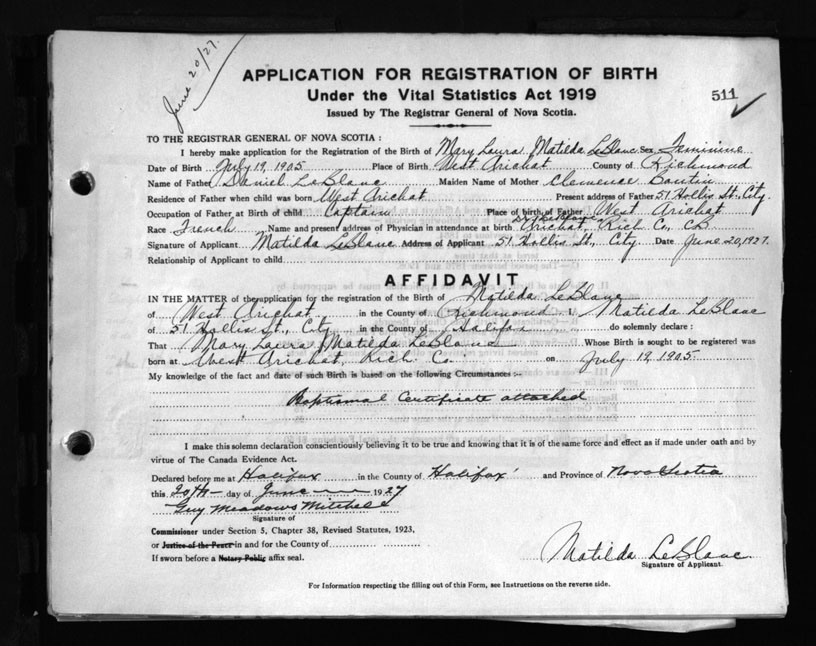 June 20/27.
APPLICATION FOR REGISTRATION OF BIRTH
Under the Vital Statistics Act 1919
511
Issued by The Registrar General of Nova Scotia.
TO THE REGISTRAR GENERAL OF NOVA SCOTIA :
I hereby make application for the Registration of the Birth of Mary Laura Matilda LeBlanc Sex Feminine
Date of Birth July 19, 1905 Place of Birth West Arichat County of Richmond
Name of Father Daniel LeBlanc Maiden Name of Mother Clemence Boutin
Residence of Father when child was born West Arichat Present address of Father 51 Hollis St., City
Occupation of Father at Birth of child Captain Place of birth of Father West Arichat
Race French Name and present address of Physician in attendance at birth Arichat, Rich Co., C.B.
Signature of Applicant Matilda LeBlanc Address of Applicant 51 Hollis St., City Date June 20, 1927.
Relationship of Applicant to child
AFFIDAVIT
IN THE MATTER of the application for the registration of the Birth of Matilda LeBlanc
of West Arichat in the County of Richmond I, Matilda LeBlanc
of 51 Hollis St., City in the County of Halifax do solemnly declare :
That Mary Laura Matilda LeBlanc Whose Birth is sought to be registered was
born at West Arichat Rich Co. on July 19, 1905
My knowledge of the fact and date of such Birth is based on the following Circumstances :-
Baptismal Certificate attached
I make this solemn declaration conscientiously believing it to be true and knowing that it is of the same force and effect as if made under oath and by
virtue of The Canada Evidence Act.
Declared before me at Halifax in the County of Halifax and Province of Nova Scotia
this 20th day of June 1927
Guy Meadows Mitchell
Signature of
Commissioner under Section 5, Chapter 38, Revised Statutes, 1923,
or Justice of the Peace in and for the County of
If sworn before a Notary Public affix seal.
Matilda LeBlanc
Signature of Applicant.
For Information respecting the filling out of this Form, see Instructions on the reverse side.